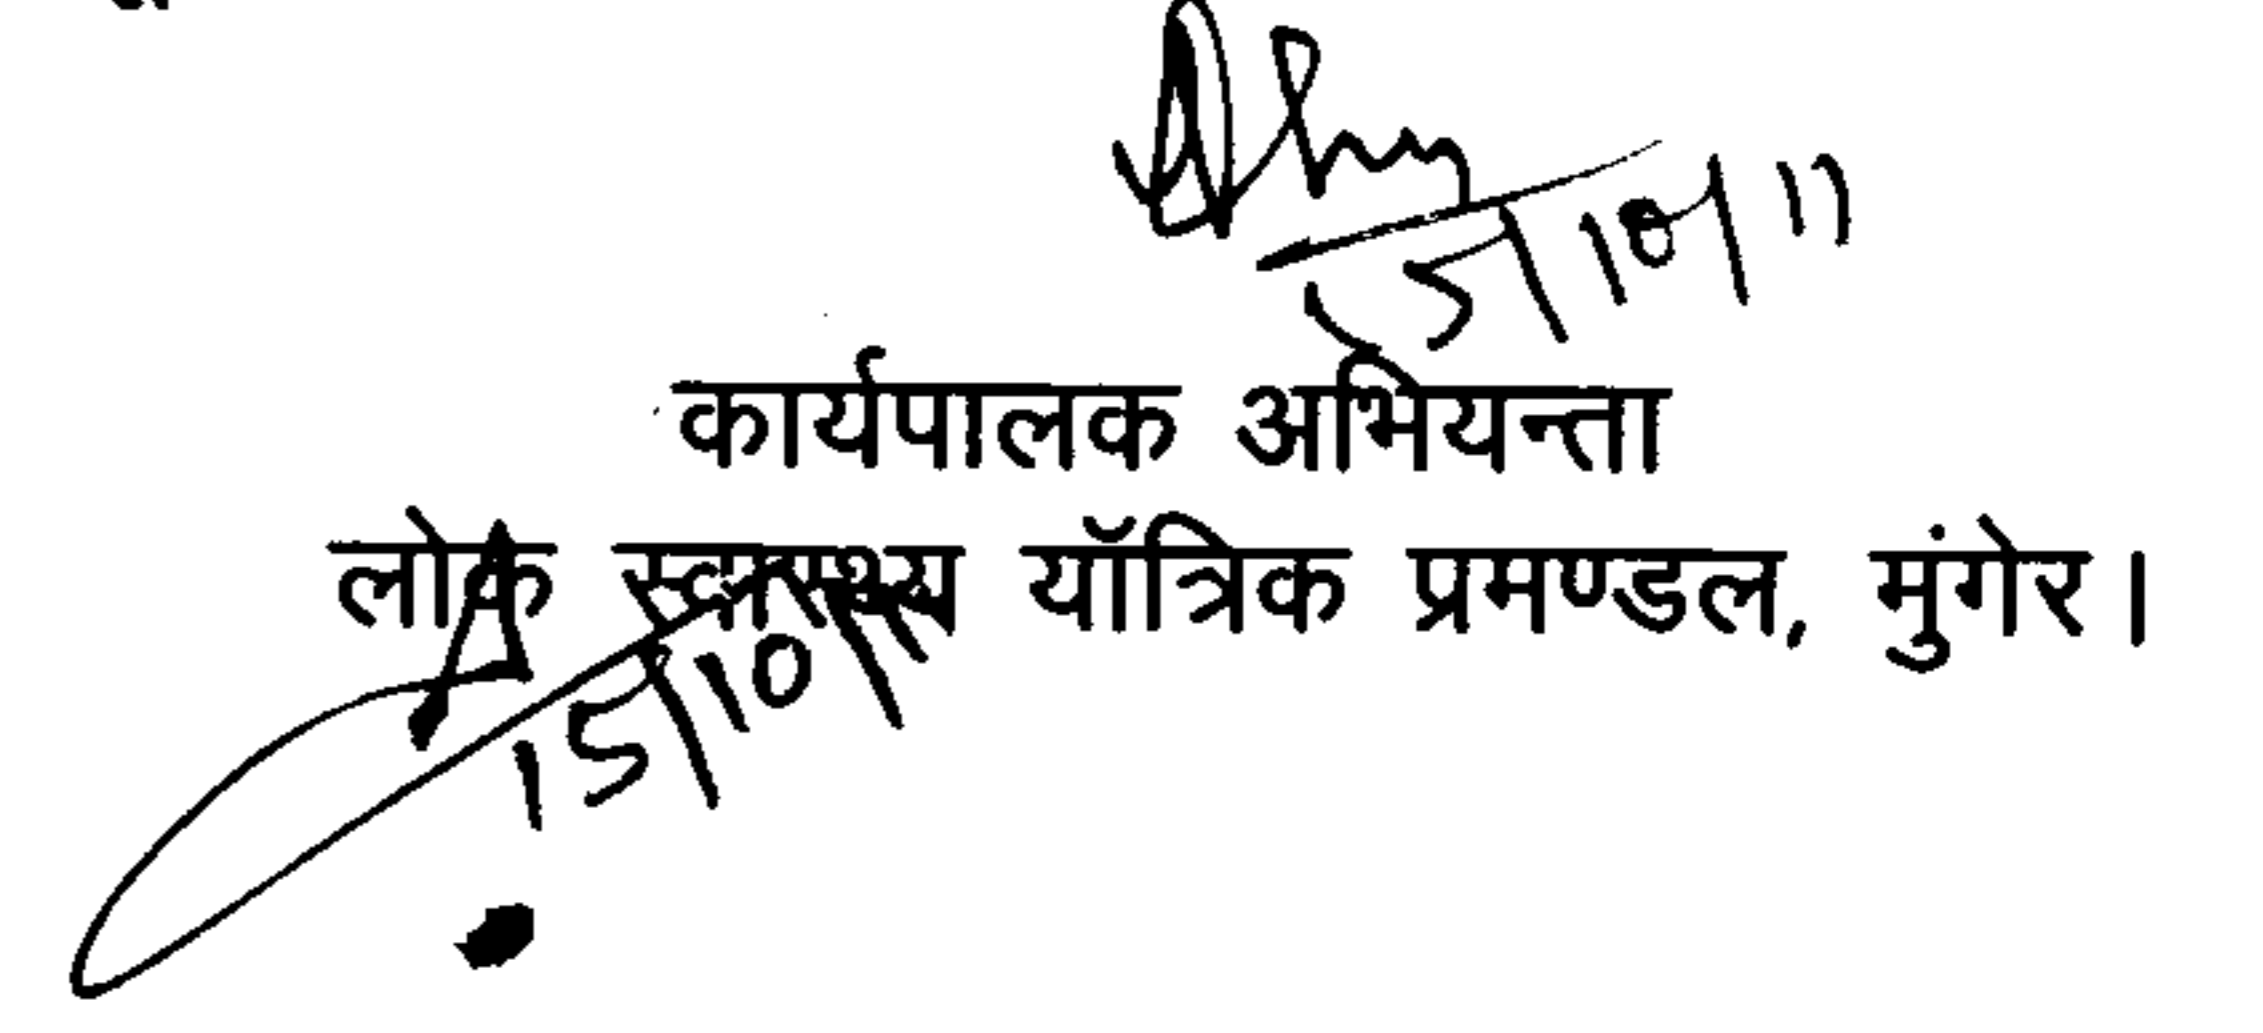 15/10/11
कार्यपालक अभियन्ता
लोक स्वास्थ्य यॉत्रिक प्रमण्डल, मुंगेर।
15/10/11